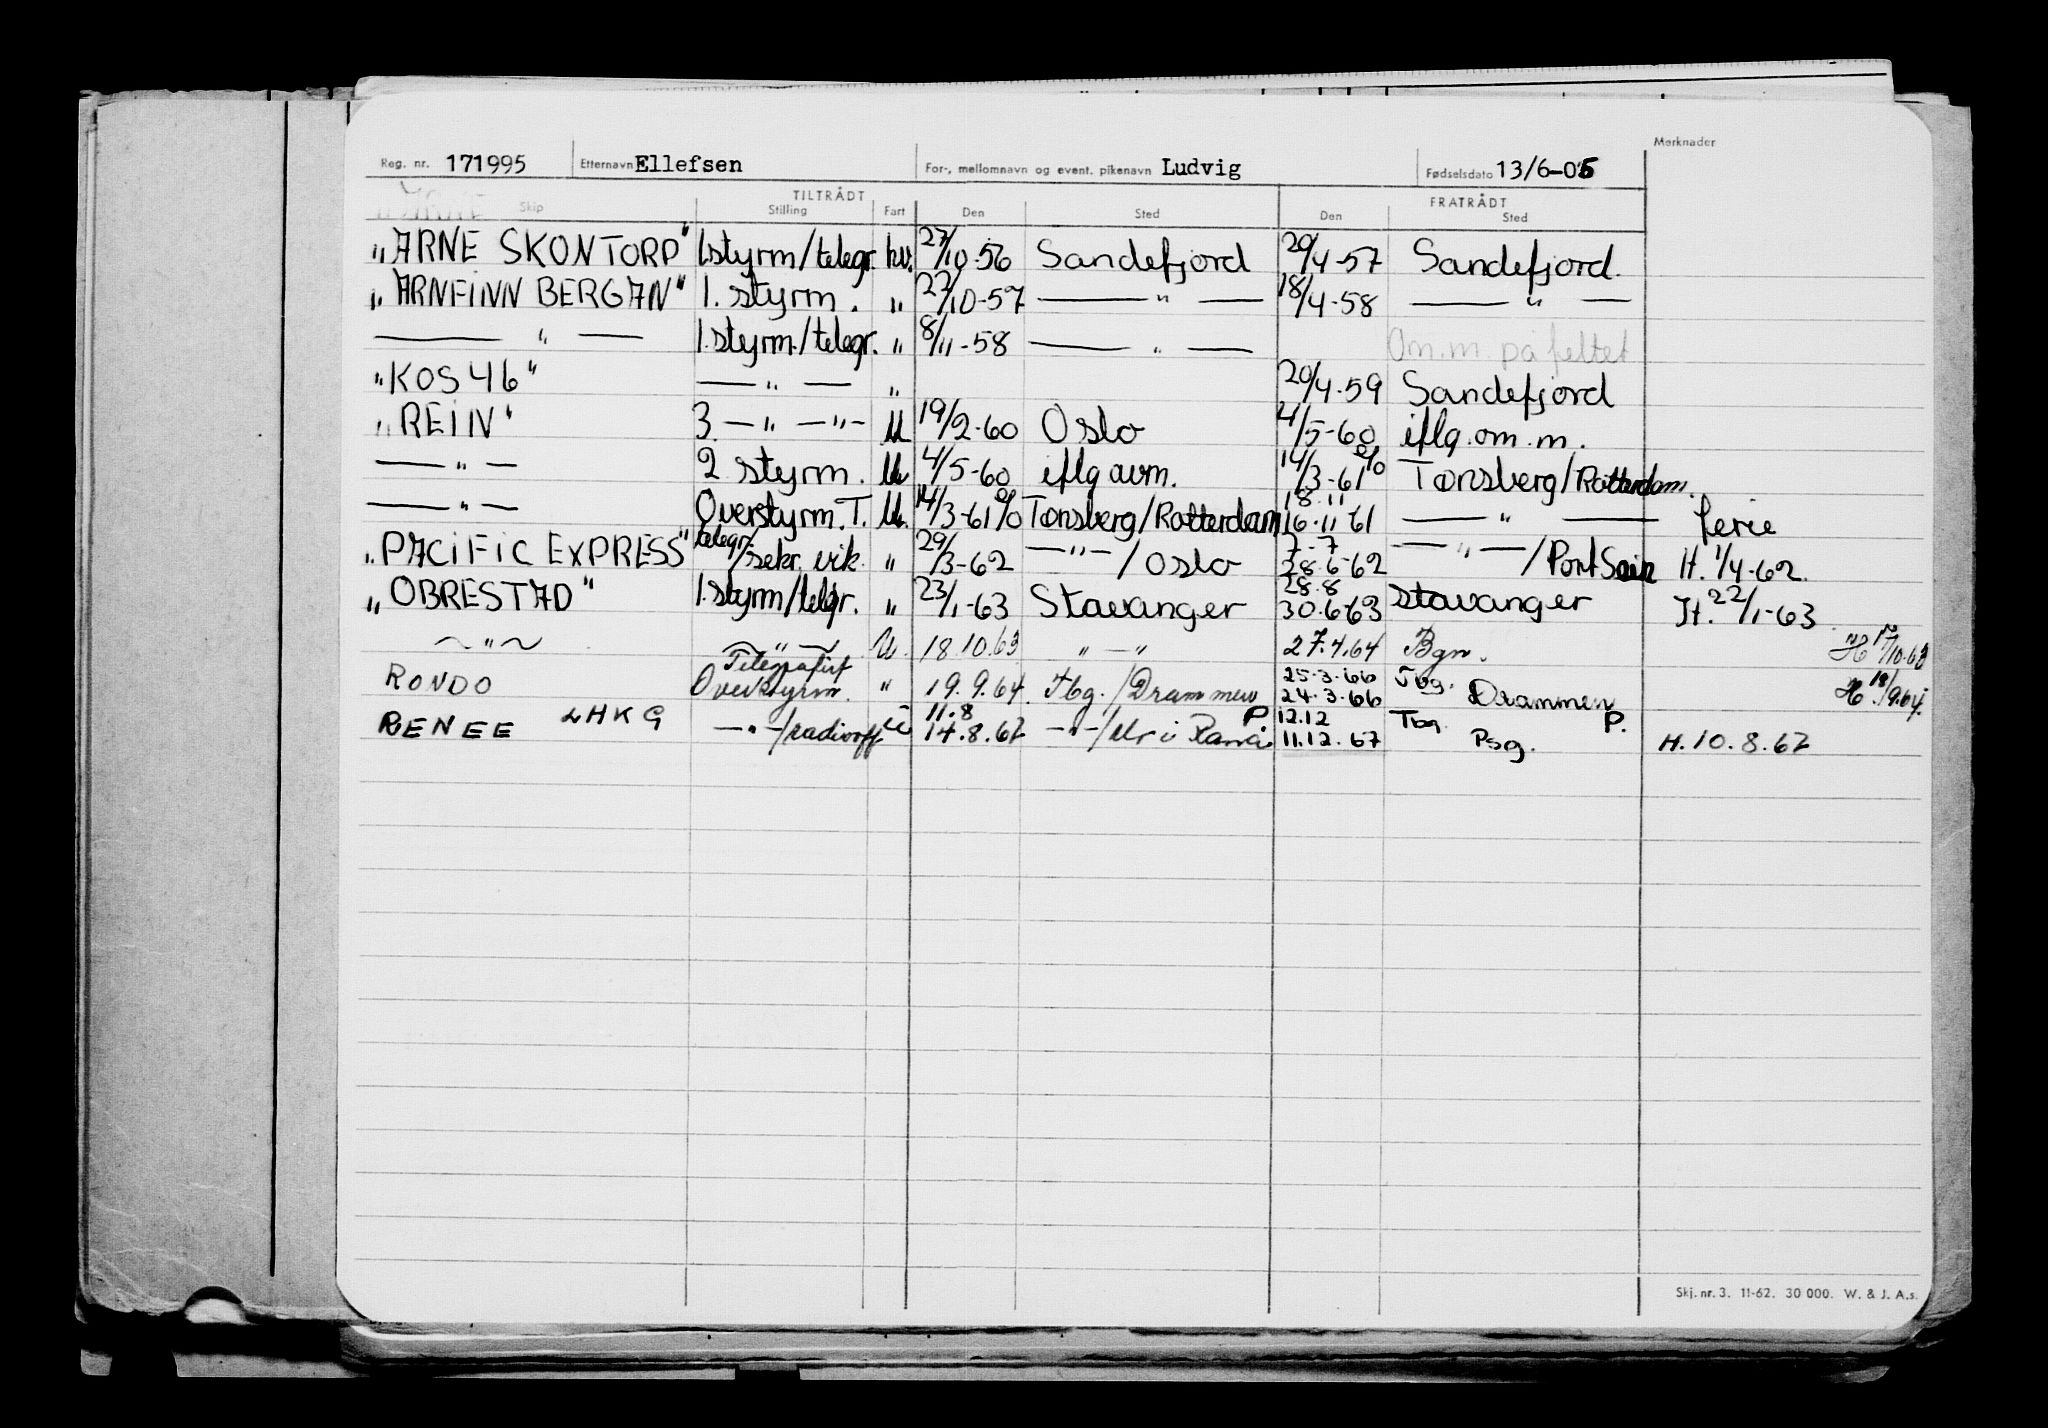 Merknader
Reg. nr. 171995 Etternavn Ellefsen For-, mellomnavn og event. pikenavn Ludvig Fødselsdato 13/6-05
TILTRÅDT FRATRÅDT
Skip Stilling Fart Den Sted Den Sted
"ARNE SKONTORP" 1.styrm/telegr. hv. 27/10-56 Sandefjord 20/4-57 Sandefjord.
"ARNFINN BERGAN" 1. styrm. " 22/10-57 — " — 18/4-58 — " —
— " — 1.styrm./telegr. " 8/11-58 — " — Om.m. på feltet
"KOS 46" — " — " 20/4-59 Sandefjord
"REIN" 3. — " — " — U 19/2-60 Oslo 4/5-60 iflg. om. m.
— " — 2 styrm. U 4/5-60 iflg avm. 14/3-61 % Tønsberg/Rotterdam.
— " — Overstyrm. T. U. 14/3-61 % Tønsberg/Rotterdam 18.11 16-11-61 — " — ferie
"PACIFIC EXPRESS" telegr./sekr. vik. " 29/3-62 — " — / Oslo 7-7 28-6-62 — " — /Port Said H. 1/4-62.
"OBRESTAD" 1.styrm/telgr. " 23/1-63 Stavanger 28.8 30.6-63 Stavanger H. 22/1-63
~ " ~ ~ " ~ U. 18.10.63 " — " 27.4.64 Bgn. H 17/10.63
RONDO Telegrafist Overstyrm. " 19.9.64. Tbg./Drammen 25-3-66 24-3-66 Tbg. Drammen H. 18/9.64.
RENEE LHKG — " —/radiooff U 11.8 14.8.67 — " —/ P. 12.12 11.12.67 Tbg. Psg. P. H. 10.8.67
Skj. nr. 3. 11-62. 30 000. W. & J. A.s.